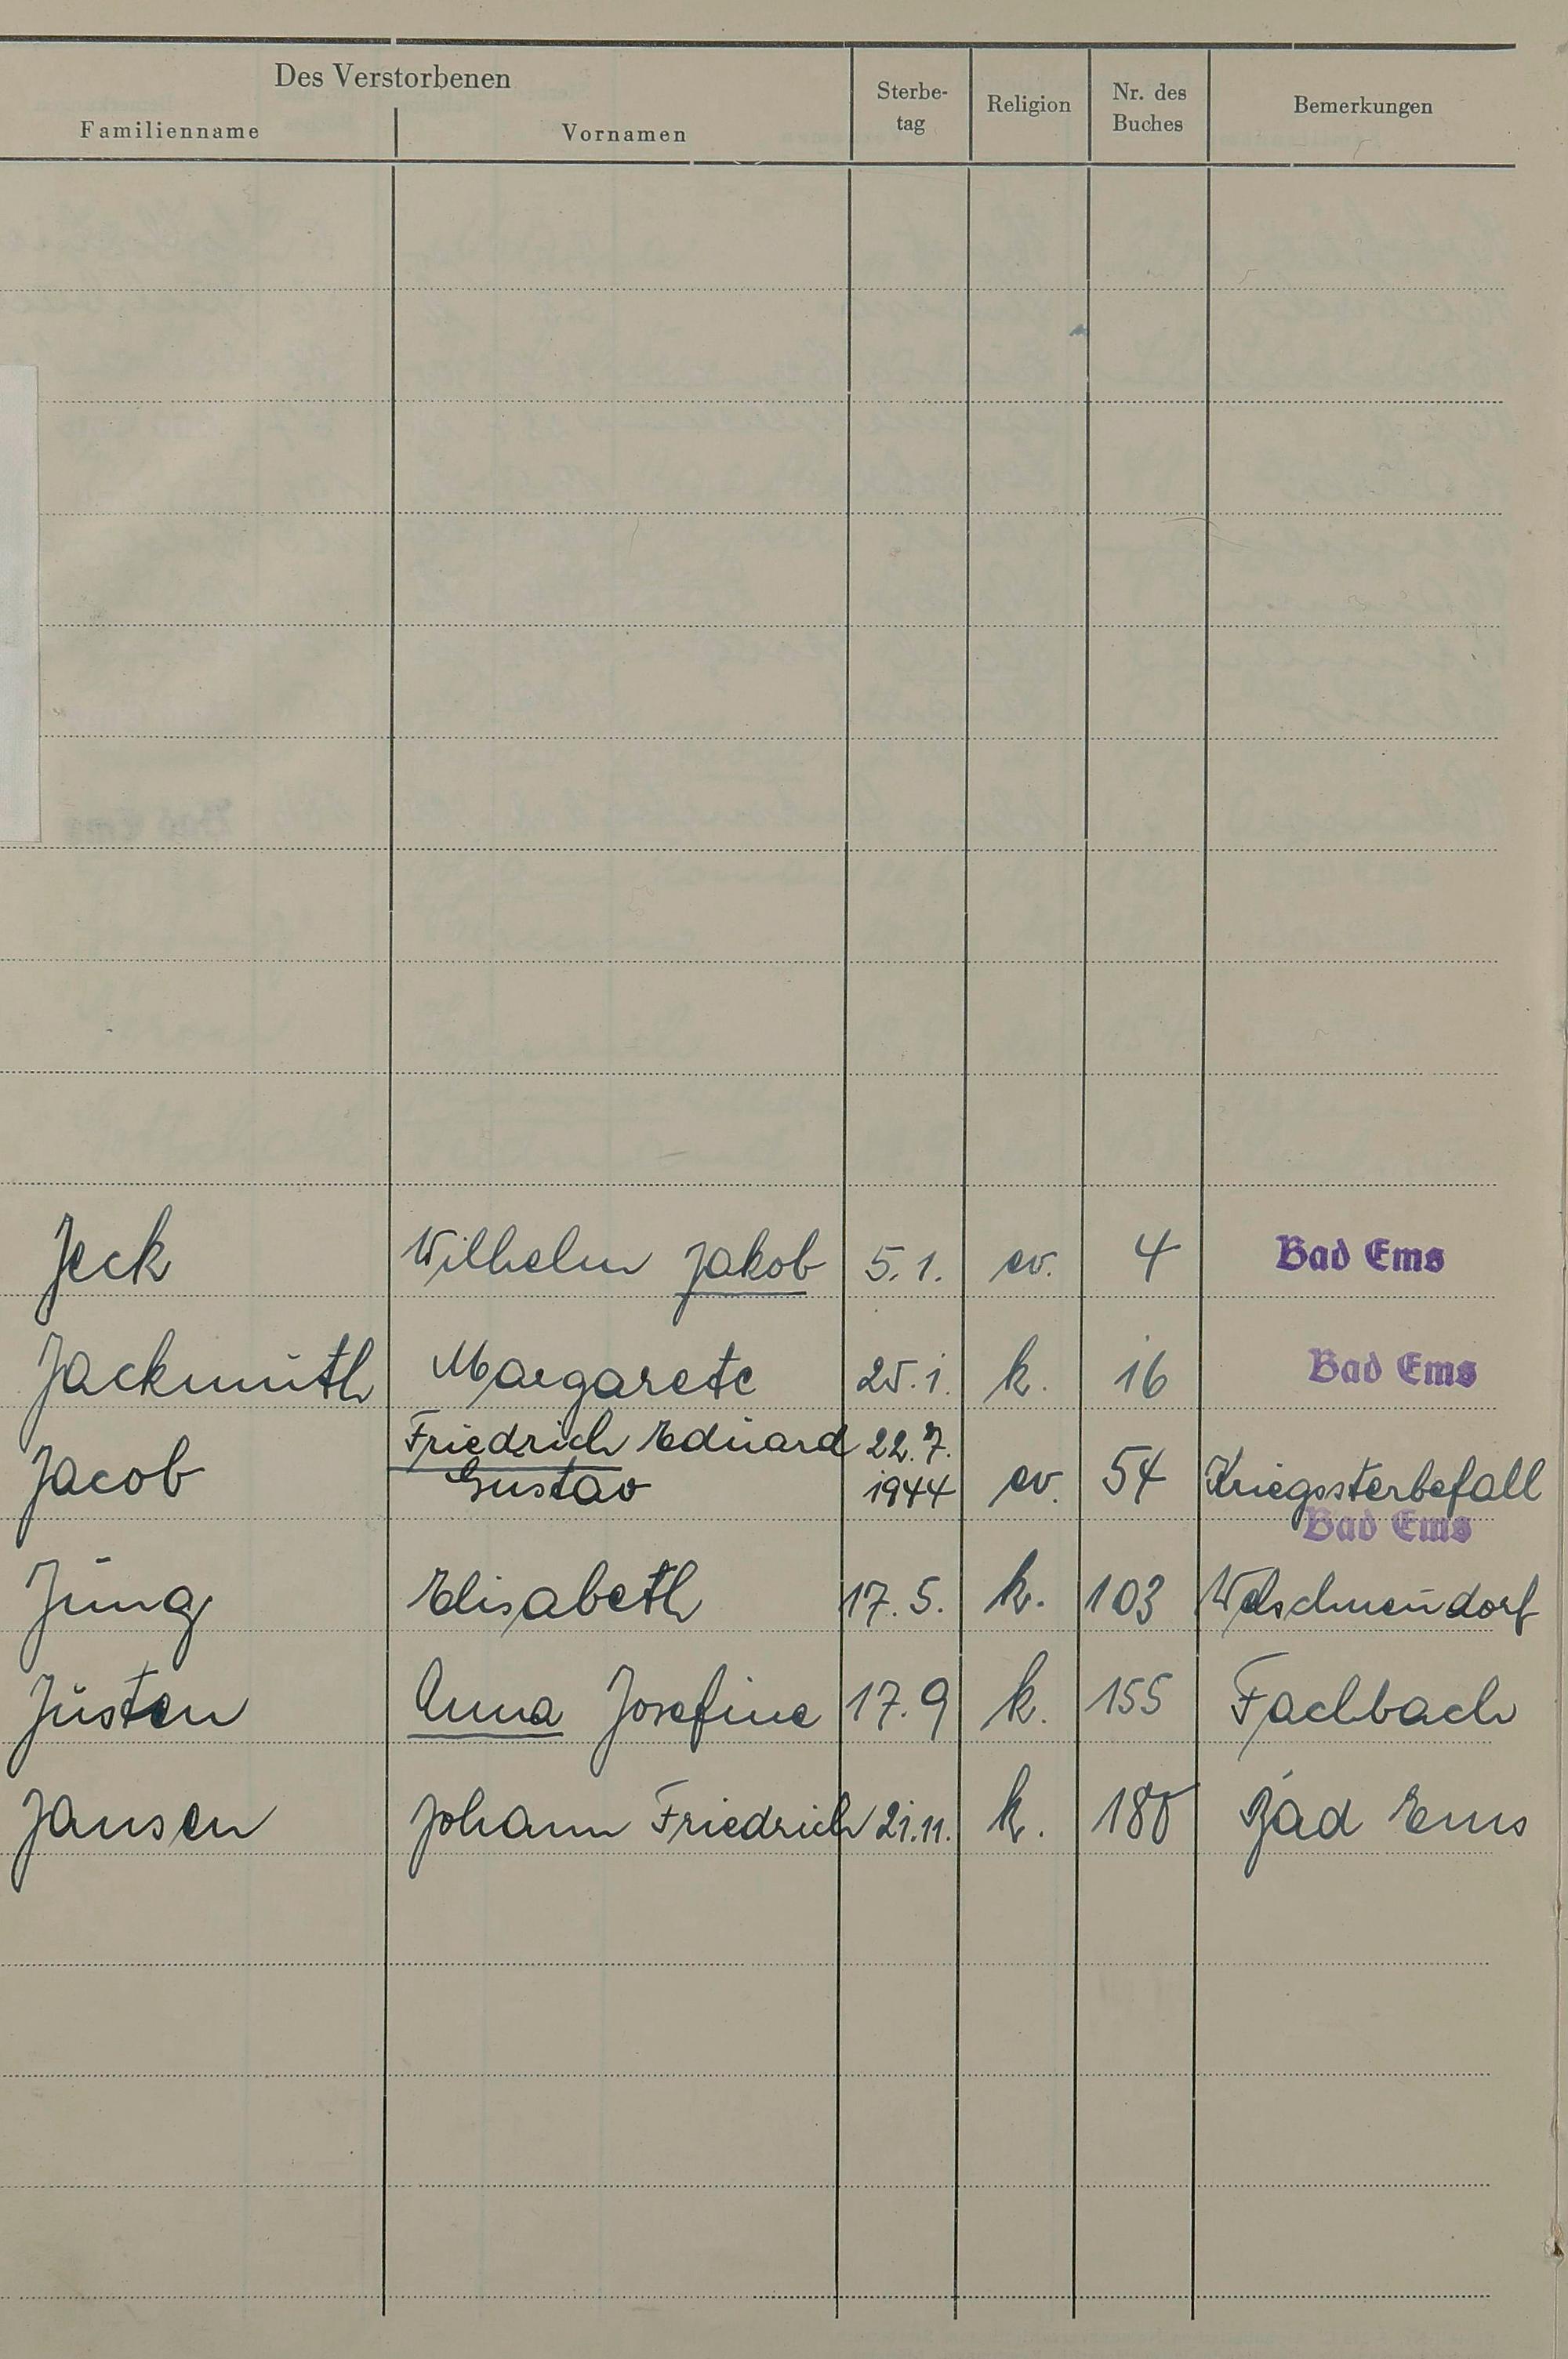 Des Verstorbenen
Familienname Vornamen Sterbe-tag Religion Nr. des Buches Bemerkungen
Jeck Wilhelm Jakob 5.1. ev. 4 Bad Ems
Jackmuth Margarete 25.1. k. 16 Bad Ems
Jacob Friedrich Eduard Gustav 22.7. 1944 ev. 54 Kriegssterbefall Bad Ems
Jung Elisabeth 17.5. k. 103 Welschneudorf
Justen Anna Josefine 17.9 k. 155 Fachbach
Jansen Johann Friedrich 21.11. k. 180 Bad Ems